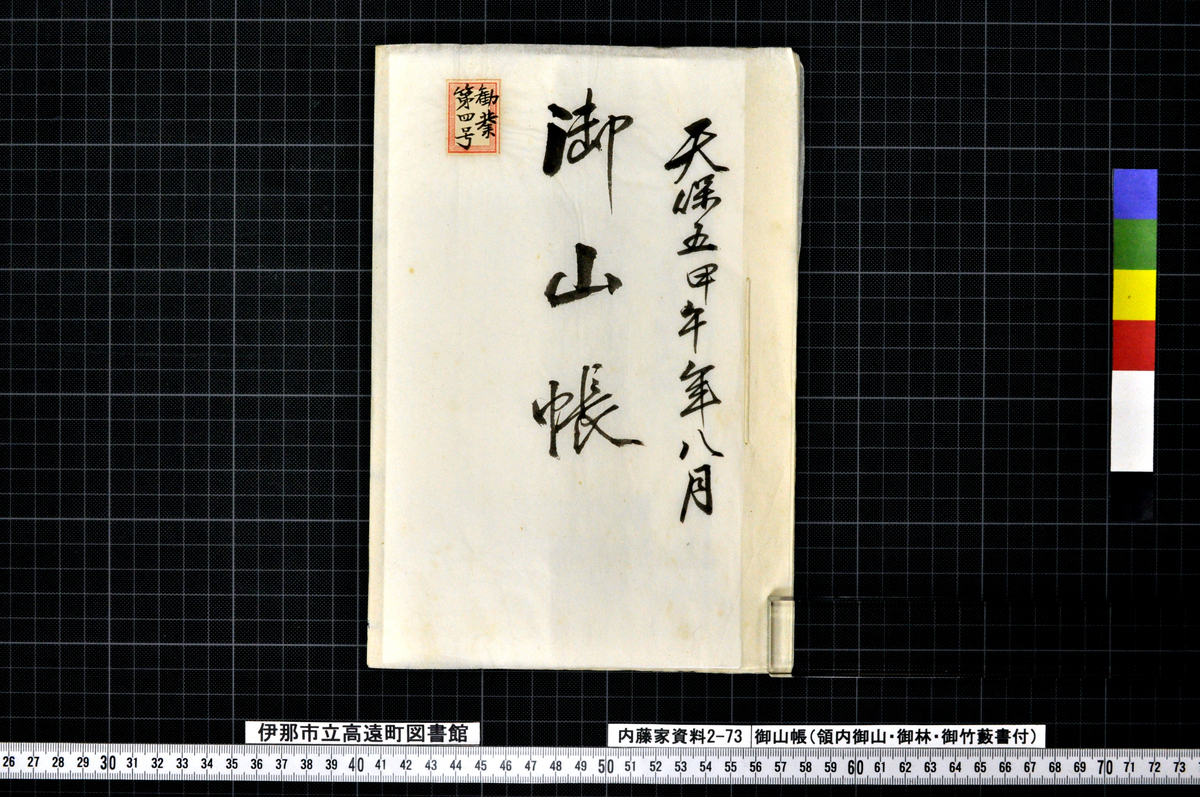 天保五甲午年八月
御山帳
勧業
第四号
伊那市立高遠町図書館
内藤家資料2-73
御山帳(領内御山・御林・御竹藪書付)
26 27 28 29 30 31 32 33 34 35 36 37 38 39 40 41 42 43 44 45 46 47 48 49 50 51 52 53 54 55 56 57 58 59 60 61 62 63 64 65 66 67 68 69 70 71 72 73